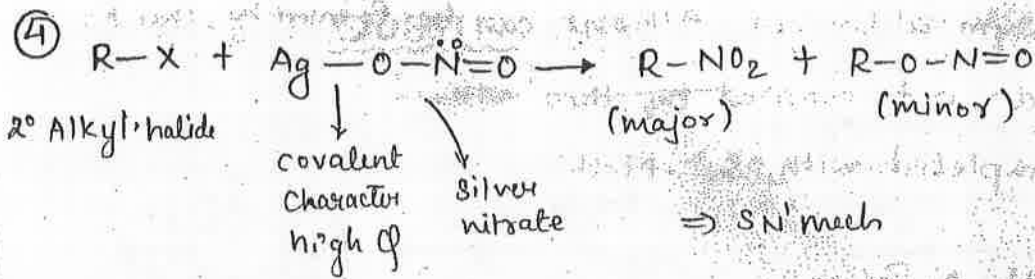 ④ R–X + Ag–O–N̈=O ⟶ R–NO₂ + R–O–N=O
2° Alkyl halide (major) (minor)
covalent character high φ
silver nitrate
⇒ SN' mech